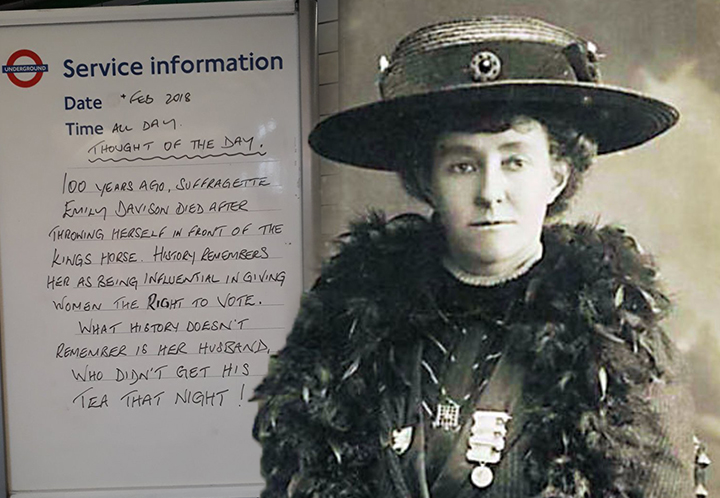 UNDERGROUND
Service information
Date * FEB 2018
Time ALL DAY.
THOUGHT OF THE DAY.
100 YEARS AGO, SUFFRAGETTE
EMILY DAVISON DIED AFTER
THROWING HERSELF IN FRONT OF THE
KINGS HORSE. HISTORY REMEMBERS
HER AS BEING INFLUENTIAL IN GIVING
WOMEN THE RIGHT TO VOTE.
WHAT HISTORY DOESN'T
REMEMBER IS HER HUSBAND,
WHO DIDN'T GET HIS
TEA THAT NIGHT!